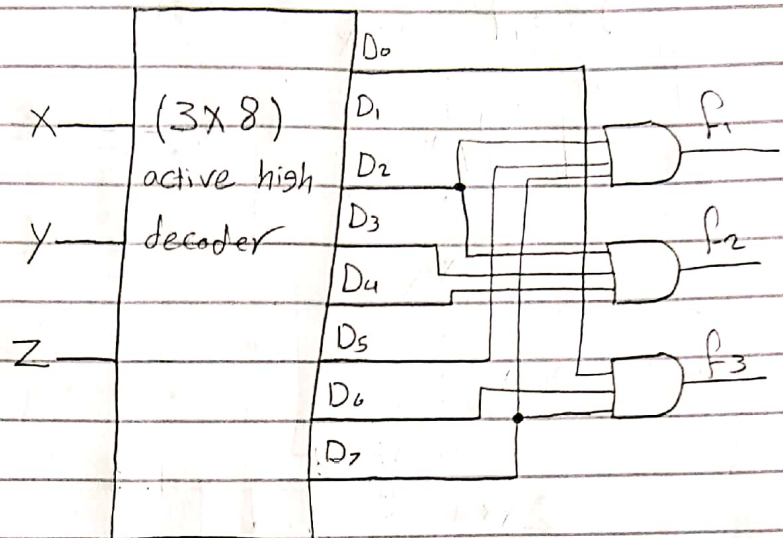 X
Y
Z
(3X8)
active high
decoder
D0
D1
D2
D3
D4
D5
D6
D7
f1
f2
f3